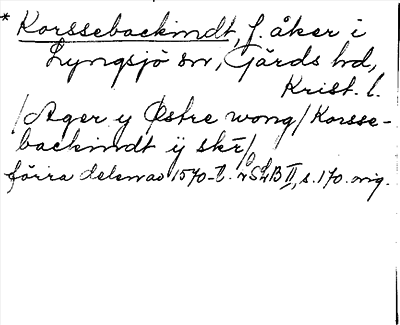 * Korssebackindt, f. åker i
Lyngsjö sn, Gärds hd,
Krist. l.
/Ager y Østre wong/Korsse-
backindt ÿ skř/
förra delen av 1570-t. LSLB II, s. 170. orig.